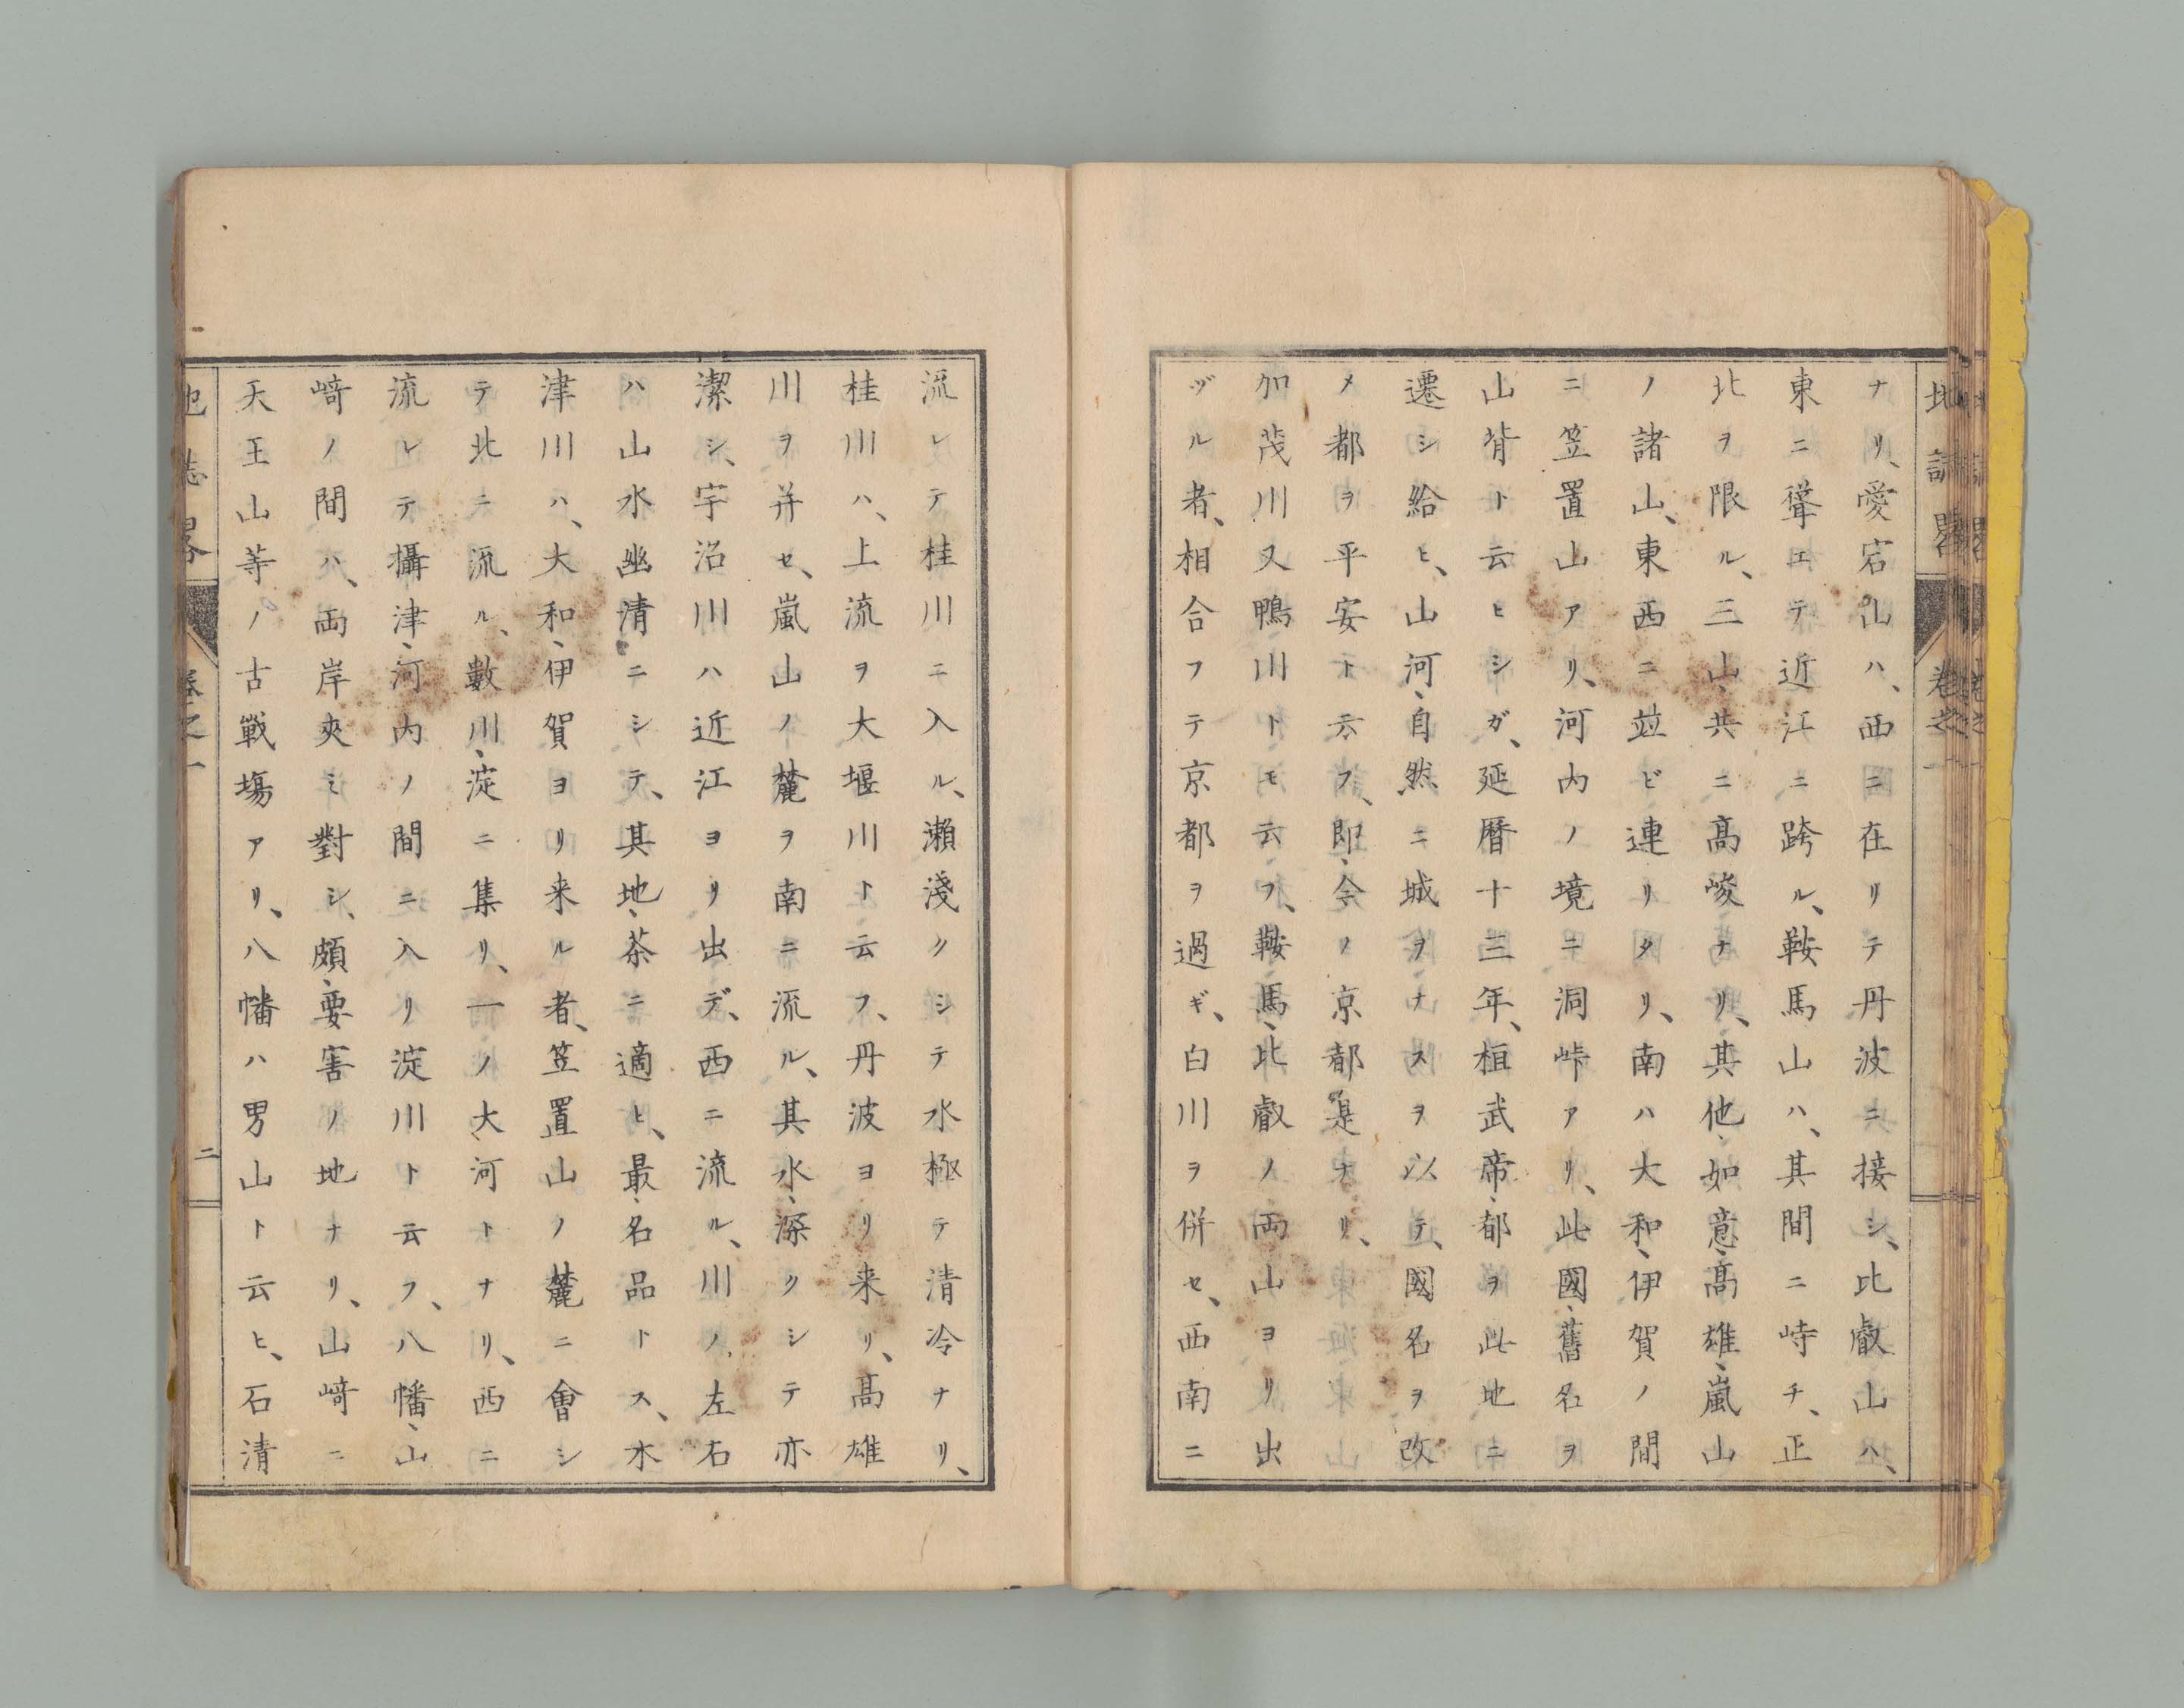 地誌畧 卷之一
ナリ、愛宕山ハ、西ニ在リテ丹波ニ接シ、比叡山ハ、
東ニ聳エテ近江ニ跨ル、鞍馬山ハ、其間ニ峙チ、正
北ヲ限ル、三山、共ニ髙峻ナリ、其他、如意、髙雄、嵐山
ノ諸山、東西ニ竝ビ連リタリ、南ハ大和、伊賀ノ間
ニ笠置山アリ、河内ノ境ニ洞峠アリ、此國、舊名ヲ
山背ト云ヒシガ、延暦十三年、桓武帝、都ヲ此地ニ
遷シ給ヒ、山河、自然ニ城ヲナスヲ以テ、國名ヲ改
メ都ヲ平安ト云フ、即、今ノ京都是ナリ、
加茂川又鴨川トモ云フ、鞍馬、比叡ノ両山ヨリ出
ヅル者、相合フテ京都ヲ過ギ、白川ヲ併セ、西南ニ
流レテ桂川ニ入ル、瀬淺クシテ水極テ清冷ナリ、
桂川ハ、上流ヲ大堰川ト云フ、丹波ヨリ来リ、髙雄
川ヲ并セ、嵐山ノ麓ヲ南ニ流ル、其水、深クシテ亦
潔シ、宇治川ハ近江ヨリ出デ、西ニ流ル、川ノ左右
ハ山水幽清ニシテ、其地、茶ニ適ヒ、最、名品トス、木
津川ハ、大和、伊賀ヨリ来ル者、笠置山ノ麓ニ會シ
テ北ニ流ル、數川、淀ニ集リ、一ノ大河トナリ、西ニ
流レテ攝津、河内ノ間ニ入リ淀川ト云フ、八幡、山
﨑ノ間ハ、両岸夾ミ對シ、頗、要害ノ地ナリ、山﨑ニ
天王山等ノ古戰塲アリ、八幡ハ男山ト云ヒ、石清
地誌畧 卷之一 二